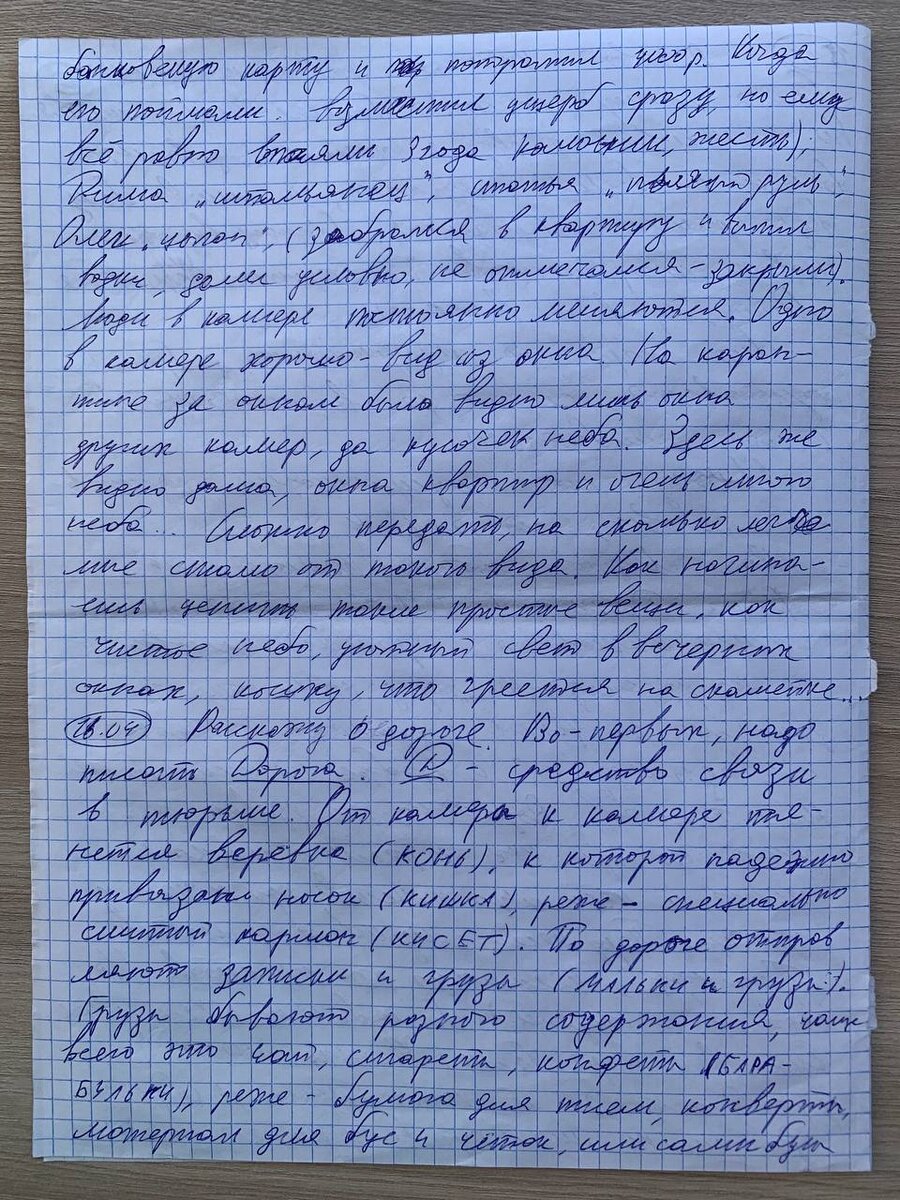 банковскую карту и потратил
его поймали. Возместил ущерб сразу, но ему
всё равно впаяли 3 года (камон, жесть);
Дима „итальянец", статья
Олег „цыган", (забрался в квартиру и выпил
водки, дали условно, не отмечался - закрыли).
Люди в камере постоянно меняются. Одно
в камере хорошо - вид из окна. На каран-
тине за окном было видно лишь окна
других камер, да кусочек неба. Здесь же
видно дома, окна квартир и очень много
неба... Сложно передать, на сколько легче
мне стало от такого вида. Как начина-
ешь ценить такие простые вещи, как
чистое небо, уютный свет в вечерних
окнах, кошку, что греется на скамейке...
Расскажу о дороге. Во-первых, надо
писать Дорога. Д - средство связи
в тюрьме. От камеры к камере тя-
нется веревка (КОНЬ), к которой надежно
привязан носок (КИШКА), реже - специально
сшитый карман (КИСЕТ). По дороге отправ
ляют записки и грузы (МАЛЬКИ и ГРУЗЫ).
Грузы бывают разного содержания, чаще
всего это чай, сигареты, конфеты (БАРА-
БУЛЬКИ), реже - бумага для писем, конверты,
материал для бус и чёток, или сами бусы